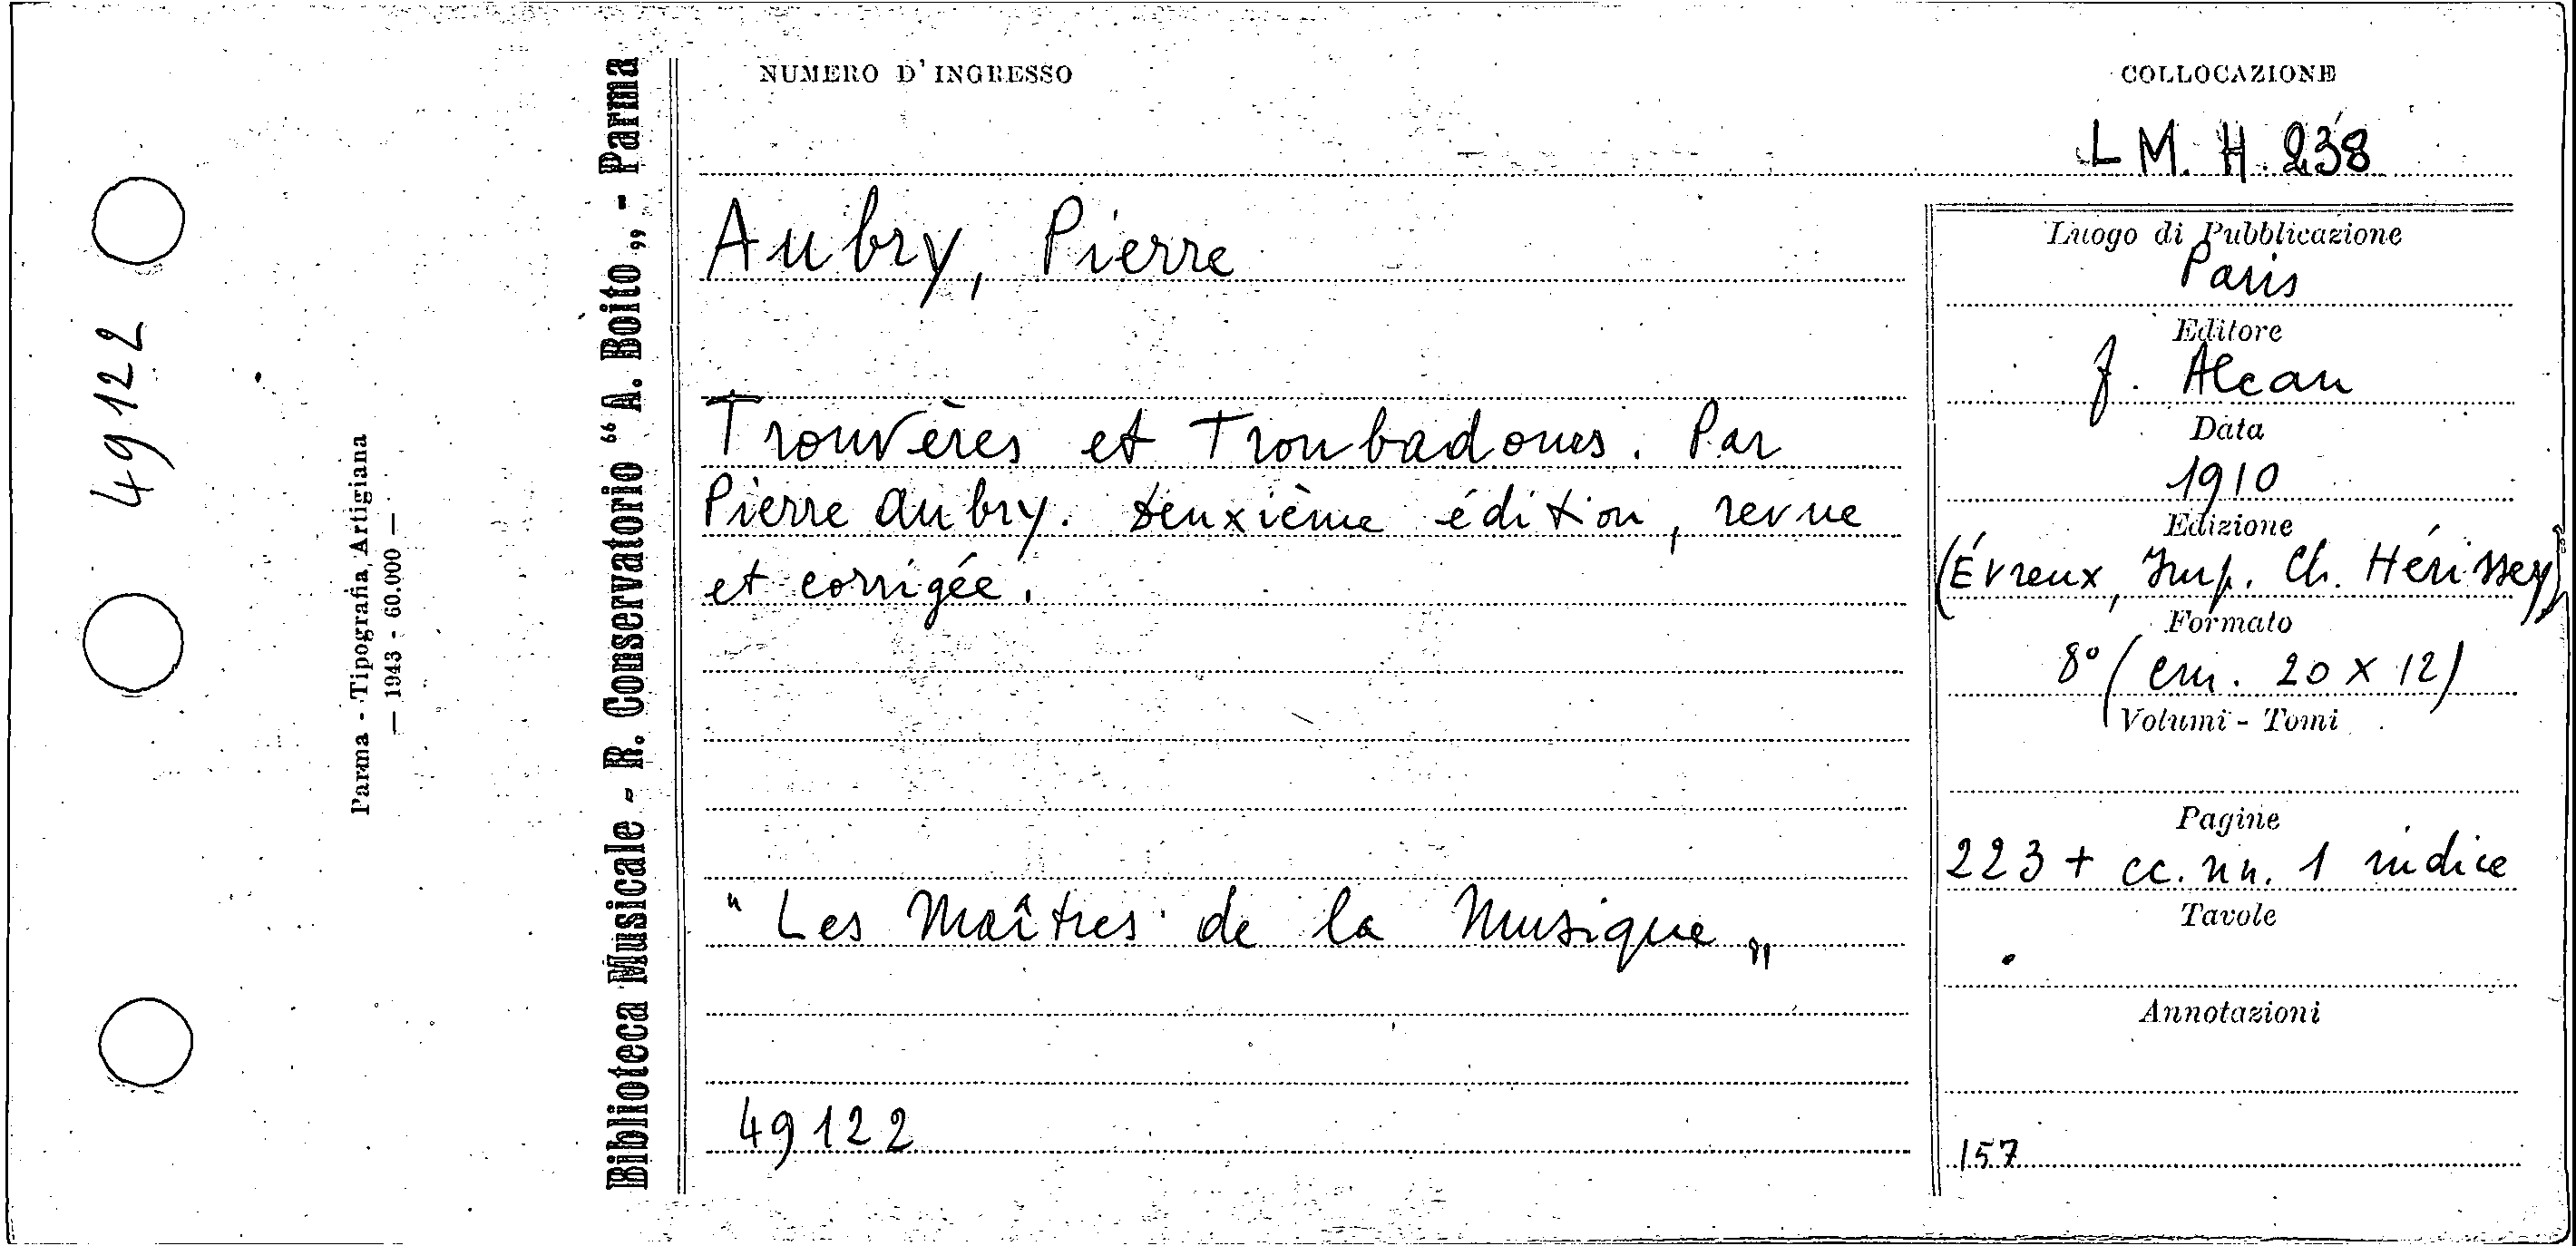 49122
Parma - Tipografia Artigiana
— 1943 - 60.000 —
Biblioteca Musicale - R. Conservatorio “A. Boito„ - Parma
NUMERO D'INGRESSO
COLLOCAZIONE
LM. H. 238
Aubry, Pierre
Trouvères et Troubadours. Par
Pierre Aubry. Deuxième édition, revue
et corrigée.
"Les Maîtres de la Musique„
49122
Luogo di Pubblicazione
Paris
Editore
F. Alcan
Data
1910
Edizione
(Évreux, Imp. Ch. Hérissey)
Formato
8° (cm. 20 x 12)
Volumi - Tomi
Pagine
223 + cc. nn. 1 indice
Tavole
Annotazioni
157